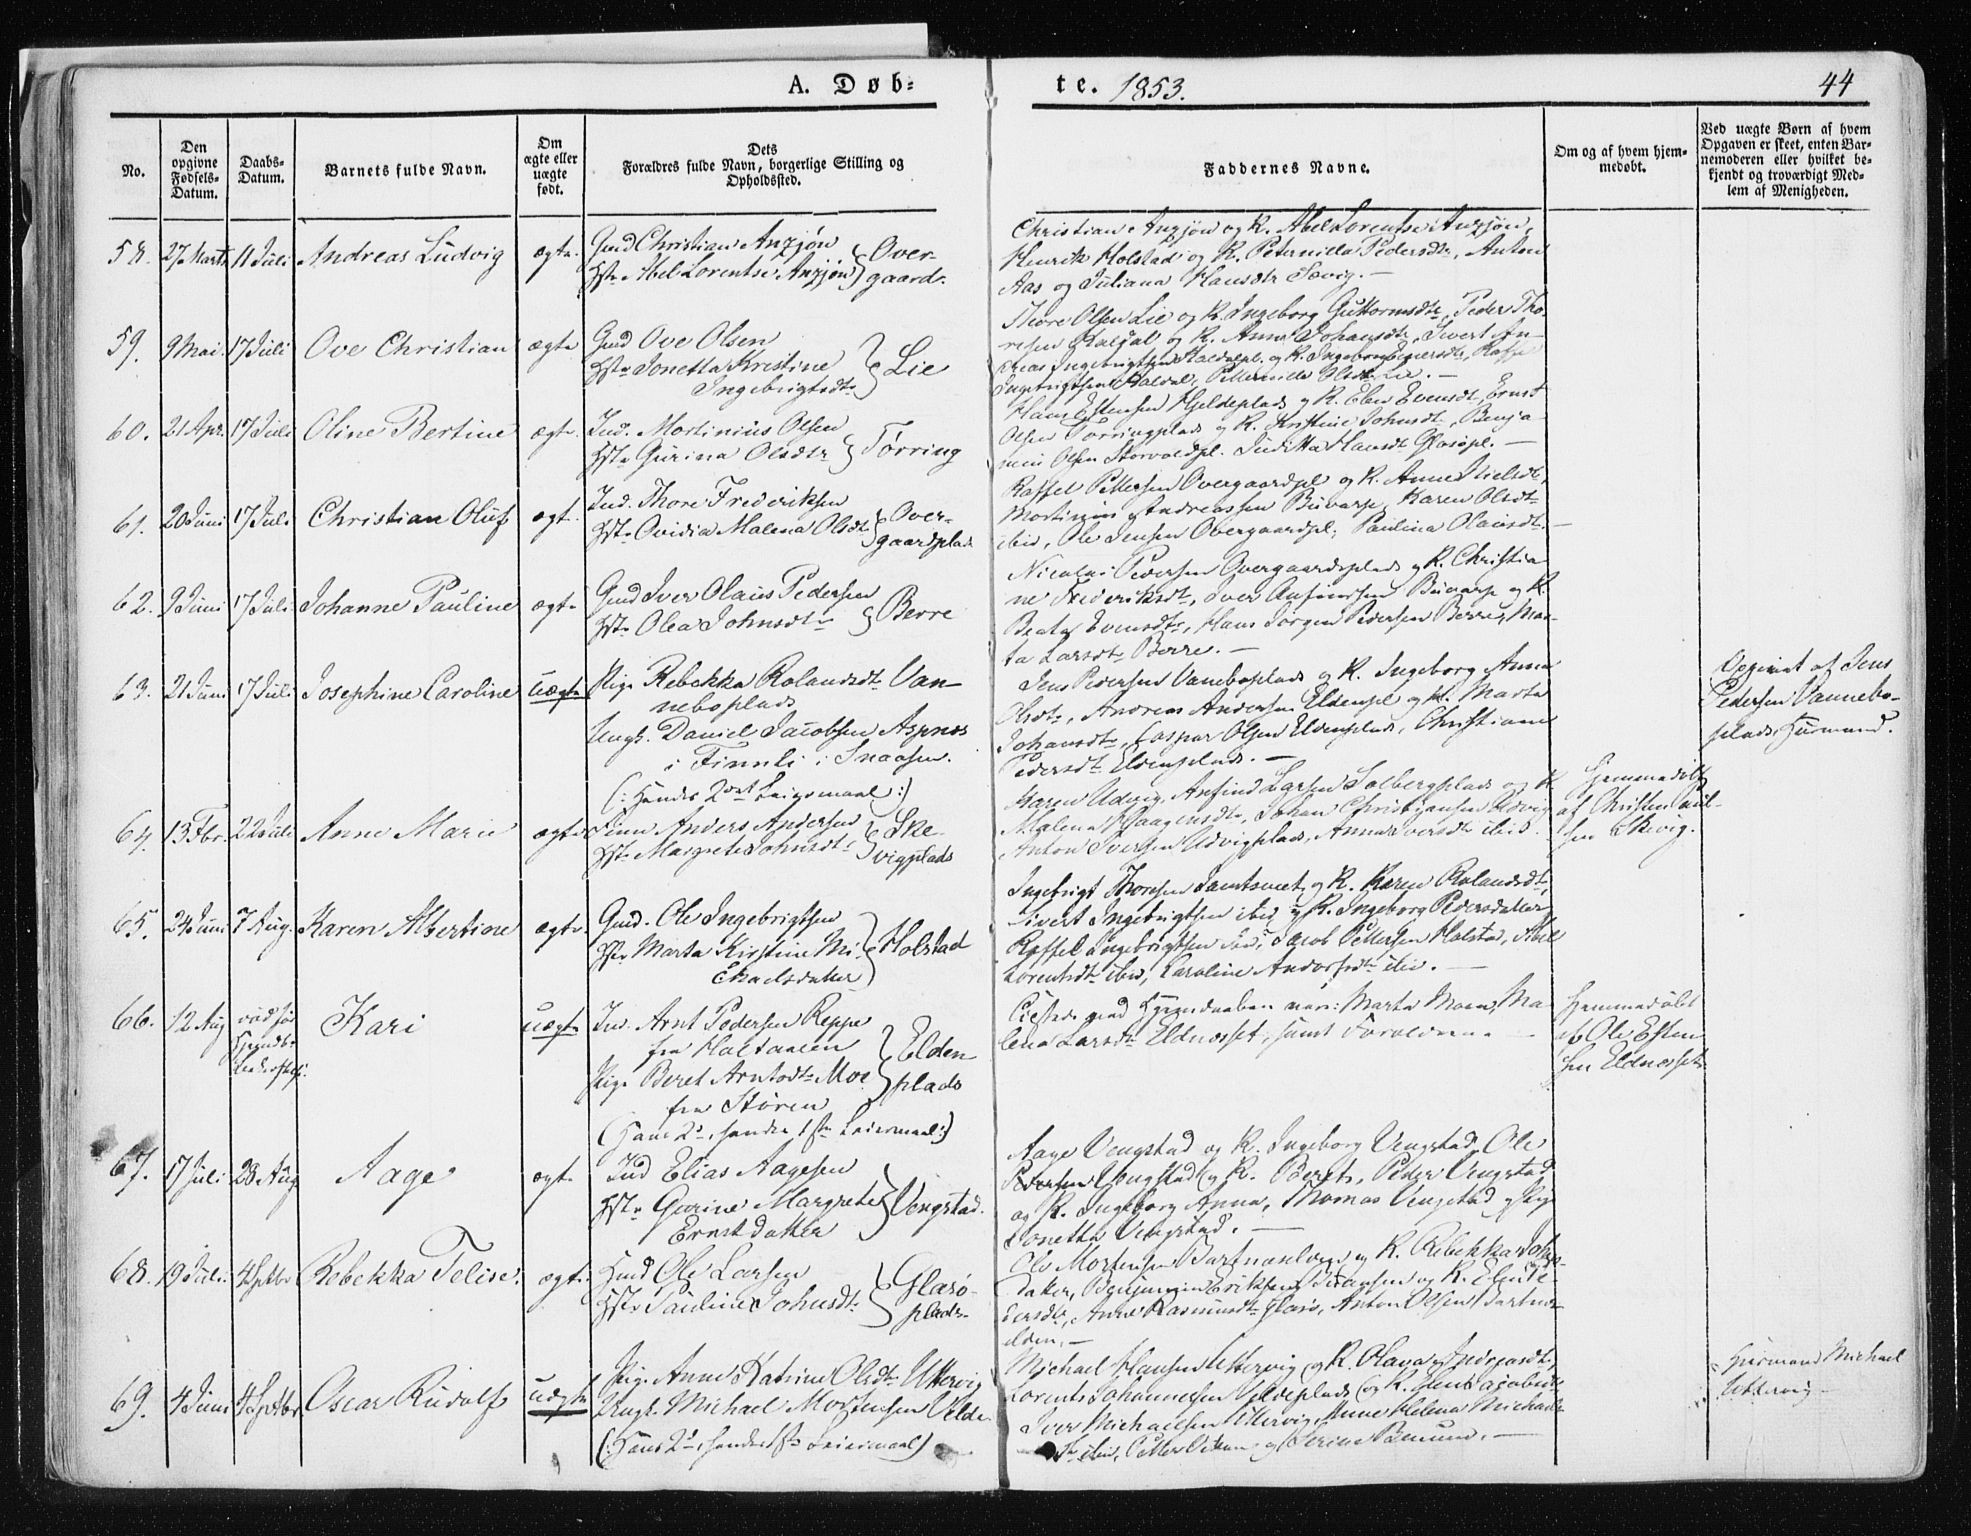 A. Døb-
te. 1853.
44
No.
Den opgivne Fødsels-Datum.
Daabs-Datum.
Barnets fulde Navn.
Om ægte eller uægte født.
Dets Forældres fulde Navn, borgerlige Stilling og Opholdssted.
Faddernes Navne.
Om og af hvem hjem-
medøbt.
Ved uægte Børn af hvem
Opgaven er skeet, enten Bar-
nemoderen eller hvilket be-
kjendt og troværdigt Med-
lem af Menigheden.
58. 27 Marts 11 Juli Andreas Ludvig ægte Gmd Christian Anzjøn
Hst. Abel Lorentse Anzjøn } Over-
gaard.
Christian Anzjøn og K. Abel Lorentse Anzjøn,
Henrik Holstad og K. Peternilla Pedersdtr, Anton
Aas og Juliana Hansdtr Sævig. —
59. 9 Mai 17 Juli Ove Christian ægte Gmd Ove Olsen
Hst. Jonetta Kristine
Ingebrigtsdtr } Lie
Thore Olsen Lie og K. Ingeborg Guttormsdtr, Peder Tho-
resen Haldal og K. Anne Johansdtr, Sivert An-
dreas Ingebrigtsen Haldalpl. og K. Ingeborg
Ingebrigtsen Haldal, Petternille Olsdtr Lie. —
60. 21 Apr. 17 Juli Oline Bertine ægte Ind. Mortinius Olsen
Hst. Gurina Olsdtr } Tørring
Hans Estensen Hjeldeplads og K. Elen Evensdt, Ernst
Olsen Tørringplads og K. Kristine Johnsdt, Benja-
min Olsen Storvoldpl. Juditta Hansdt Glasøpl. —
61. 20 Juni 17 Juli Christian Oluf ægt. Ind. Thore Frederiksen
Hst. Ovidia Malena Olsdt } Over-
gaardplads
Raffel Pettersen Overgaardpl og K. Anne Nielsdt,
Mortinus Andreassen Buvarp, Karen Olsdt
ibid, Ole Jensen Overgaardpl, Paulina Olausdt. —
62. 9 Juni 17 Juli Johanne Pauline ægte Gmd Iver Olaus Pedersen
Hst. Olea Johnsdtr } Berre
Nicolai Pedersen Overgaardsplads og K. Christia-
ne Frederiksdt, Iver Anfindsen Buvarp og K.
Beata Evensdtr, Hans Jørgen Pedersen Berre, Mar-
ta Larsdt Berre. —
63. 21 Juni 17 Juli Josephine Caroline uægte Pige Rebekka Rolandsdt. Van-
neboplads
Ungk. Daniel Jacobsen Aspnes
i Finnli i Snaasen.
(: Hendes 2det Leiermaal :)
Jens Pedersen Vaneboplads og K. Ingeborg Anna
Olsdt, Andreas Andersen Eldenpl og K. Marta
Johansdt, Caspar Olsen Eldenplads, Christiane
Pedersdt Eldenplads. —
Opgivet af Jens
Pedersen Vannebo-
plads, Huusmand.
64. 13 Fbr. 22 Juli Anne Marie ægte Anders Andersen
Hst. Margrete Johnsdt } Ske-
vigplads
Karen Udvig, Anfind Larsen Solbergplads og K
Malena Haagensdt, Johan Christjansen Udvig
Anton Iversen Udvigplads, Anna Iversdtr ibid.
Hjemmedøbt
af Christen
sen Skevig.
65. 24 Juni 7 Aug. Karen Albertine ægte Gmd. Ole Ingebrigtsen
Hst. Marta Kirstine Mi-
kaelsdatter } Holstad
Ingebrigt Thoresen Jamtsvet og K. Karen Rolandsdt,
Sivert Ingebrigtsen ibid og K. Ingeborg Pedersdatter
Raffel Ingebrigtsen ibid, Jacob Pettersen Holstad, Abel
Lorentsdt ibid, Caroline Andorsdt ibid. —
66. 12 Aug Kari uægte Ind. Arnt Pedersen Reppe
fra Haltaalen
Pige Beret Arntsdt Moe
fra Støren } Elden
plads
(Hans 2d, hendes 1ste Leiermaal :)
ved Hjemmedaaben var: Marta Moen, Ma-
lena Larsdt Eldnesset, samt Forældrene —
Hjemmedøbt
af Ole Esten-
sen Eldnesset
67. 17 Juli 28 Aug Aage ægte Ind Elias Aagesen
Hst. Gurine Margrete
Ernstdatter } Vengstad.
Aage Vengstad og K. Ingeborg Vengstad, Ole
Pedersen Vengstad og K. Beret, Peder Vengstad
og K. Ingeborg Anna, Thomas Vengstad og Pige
Jonetta Vengstad. —
68. 19 Juli 4 Sptbr Rebekka Felise ægte Hmd Ole Larsen
Hst. Pauline Johnsdt } Glasø-
plads.
Ole Mortensen Bartnes og K. Rebekka
datter, Benjamin Eriksen og K. Elen
Anne Rasmusdt Glasø, Anton Olsen Bartnes-
elden. —
69. 4 Juni 4 Sptbr Oscar Rudolf uægte Pige Anne Katrine Olsdt Uttervig
Ungk. Michael Mortensen Velde
(: Hans 2d, hendes 1ste Leiermaal)
Michael Hansen Uttervig og K. Olava Andreasdt,
Lorents Johannesen Veldeplads og K. Elen Jacobsdt
Iver Michaelsen Uttervig, Anne Helena Michaels-
dtr ibid, Petter og Serine —
Huusmand Michael
Uttervig